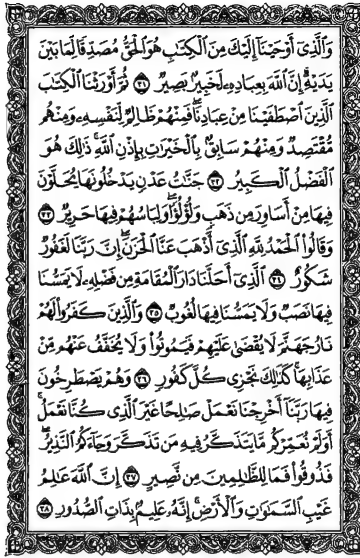 وَالَّذِي أَوْحَيْنَا إِلَيْكَ مِنَ الْكِتَٰبِ هُوَ الْحَقُّ مُصَدِّقًا لِّمَا بَيْنَ
يَدَيْهِ إِنَّ اللَّهَ بِعِبَادِهِ لَخَبِيرٌ بَصِيرٌ ٣١ ثُمَّ أَوْرَثْنَا الْكِتَٰبَ
الَّذِينَ اصْطَفَيْنَا مِنْ عِبَادِنَا فَمِنْهُمْ ظَالِمٌ لِّنَفْسِهِ وَمِنْهُم
مُّقْتَصِدٌ وَمِنْهُمْ سَابِقٌ بِالْخَيْرَٰتِ بِإِذْنِ اللَّهِ ذَٰلِكَ هُوَ
الْفَضْلُ الْكَبِيرُ ٣٢ جَنَّٰتُ عَدْنٍ يَدْخُلُونَهَا يُحَلَّوْنَ
فِيهَا مِنْ أَسَاوِرَ مِن ذَهَبٍ وَلُؤْلُؤًا وَلِبَاسُهُمْ فِيهَا حَرِيرٌ ٣٣
وَقَالُوا الْحَمْدُ لِلَّهِ الَّذِي أَذْهَبَ عَنَّا الْحَزَنَ إِنَّ رَبَّنَا لَغَفُورٌ
شَكُورٌ ٣٤ الَّذِي أَحَلَّنَا دَارَ الْمُقَامَةِ مِن فَضْلِهِ لَا يَمَسُّنَا
فِيهَا نَصَبٌ وَلَا يَمَسُّنَا فِيهَا لُغُوبٌ ٣٥ وَالَّذِينَ كَفَرُوا لَهُمْ
نَارُ جَهَنَّمَ لَا يُقْضَىٰ عَلَيْهِمْ فَيَمُوتُوا وَلَا يُخَفَّفُ عَنْهُم مِّنْ
عَذَابِهَا كَذَٰلِكَ نَجْزِي كُلَّ كَفُورٍ ٣٦ وَهُمْ يَصْطَرِخُونَ
فِيهَا رَبَّنَا أَخْرِجْنَا نَعْمَلْ صَٰلِحًا غَيْرَ الَّذِي كُنَّا نَعْمَلُ
أَوَلَمْ نُعَمِّرْكُم مَّا يَتَذَكَّرُ فِيهِ مَن تَذَكَّرَ وَجَاءَكُمُ النَّذِيرُ
فَذُوقُوا فَمَا لِلظَّٰلِمِينَ مِن نَّصِيرٍ ٣٧ إِنَّ اللَّهَ عَٰلِمُ
غَيْبِ السَّمَٰوَٰتِ وَالْأَرْضِ إِنَّهُ عَلِيمٌ بِذَاتِ الصُّدُورِ ٣٨